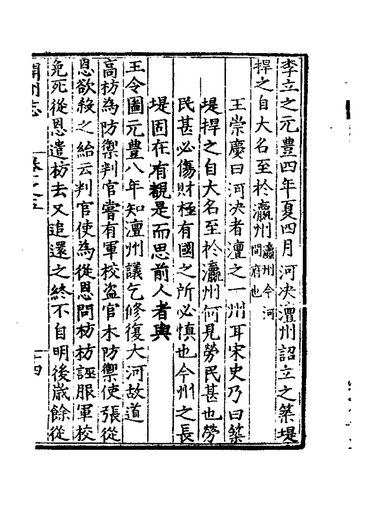 李立之元豐四年夏四月河决澶州詔立之築堤
捍之自大名至於瀛州瀛州今河間府也
王崇慶曰河决者澶之一州耳宋史乃曰築
堤捍之自大名至於瀛州何見勞民甚也勞
民甚必傷財極有國之所必慎也今州之長
堤固在有覩是而思前人者與
王令圖元豐八年知澶州議乞修復大河故道
高枋為防禦判官嘗有軍校盗官木防禦使張從
恩欲殺之紿云判官使為從恩問枋枋誣服軍校
免死從恩遣枋去又追還之終不自明後歲餘從
開州志
卷之五
十四